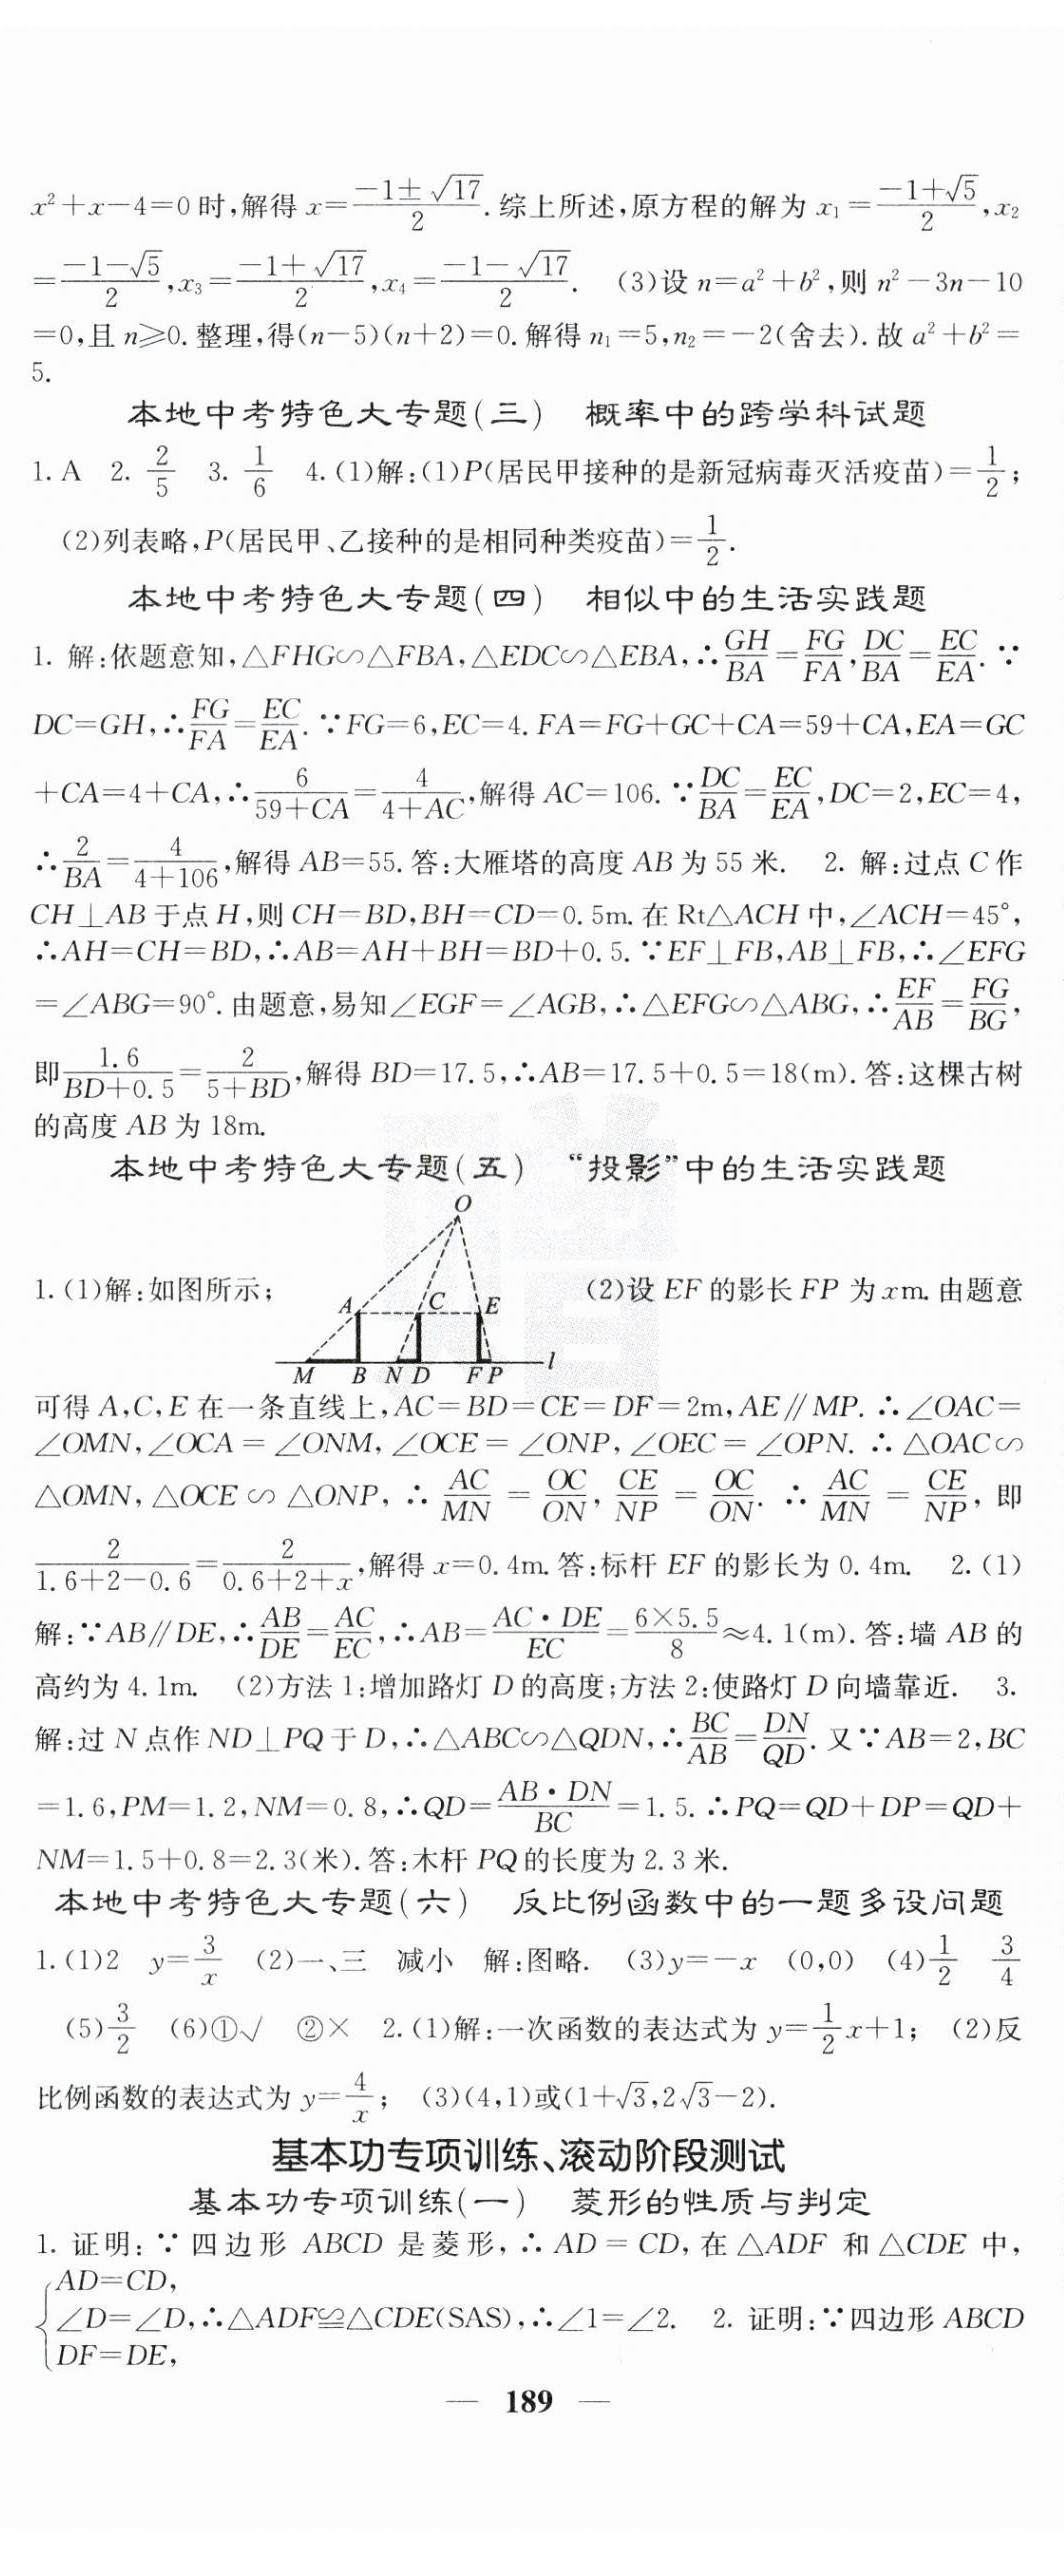 x²+x-4=0时,解得 x=(-1±√17)/2.综上所述,原方程的解为 x₁=(-1+√5)/2,x₂
=(-1-√5)/2,x₃=(-1+√17)/2,x₄=(-1-√17)/2. (3)设 n=a²+b²,则 n²-3n-10
=0,且 n≥0.整理,得(n-5)(n+2)=0.解得 n₁=5,n₂=-2(舍去).故 a²+b²=
5.
本地中考特色大专题(三) 概率中的跨学科试题
1. A 2. 2/5 3. 1/6 4. (1)解:(1)P(居民甲接种的是新冠病毒灭活疫苗)=1/2;
(2)列表略,P(居民甲、乙接种的是相同种类疫苗)=1/2.
本地中考特色大专题(四) 相似中的生活实践题
1. 解:依题意知,△FHG∽△FBA,△EDC∽△EBA,∴GH/BA=FG/FA,DC/BA=EC/EA.∵
DC=GH,∴FG/FA=EC/EA.∵FG=6,EC=4.FA=FG+GC+CA=59+CA,EA=GC
+CA=4+CA,∴6/(59+CA)=4/(4+AC),解得 AC=106.∵DC/BA=EC/EA,DC=2,EC=4,
∴2/BA=4/(4+106),解得 AB=55.答:大雁塔的高度 AB 为 55 米. 2. 解:过点 C 作
CH⊥AB 于点 H,则 CH=BD,BH=CD=0.5m.在 Rt△ACH 中,∠ACH=45°,
∴AH=CH=BD,∴AB=AH+BH=BD+0.5.∵EF⊥FB,AB⊥FB,∴∠EFG
=∠ABG=90°.由题意,易知∠EGF=∠AGB,∴△EFG∽△ABG,∴EF/AB=FG/BG,
即1.6/(BD+0.5)=2/(5+BD),解得 BD=17.5,∴AB=17.5+0.5=18(m).答:这棵古树
的高度 AB 为 18m.
本地中考特色大专题(五) “投影”中的生活实践题
O
1. (1)解:如图所示; (2)设 EF 的影长 FP 为 xm.由题意
A C E
M B N D F P l
可得 A,C,E 在一条直线上,AC=BD=CE=DF=2m,AE∥MP.∴∠OAC=
∠OMN,∠OCA=∠ONM,∠OCE=∠ONP,∠OEC=∠OPN.∴△OAC∽
△OMN,△OCE∽△ONP,∴AC/MN=OC/ON,CE/NP=OC/ON.∴AC/MN=CE/NP,即
2/(1.6+2-0.6)=2/(0.6+2+x),解得 x=0.4m.答:标杆 EF 的影长为 0.4m. 2. (1)
解:∵AB∥DE,∴AB/DE=AC/EC,∴AB=AC·DE/EC=6×5.5/8≈4.1(m).答:墙 AB 的
高约为 4.1m. (2)方法 1:增加路灯 D 的高度;方法 2:使路灯 D 向墙靠近. 3.
解:过 N 点作 ND⊥PQ 于 D,∴△ABC∽△QDN,∴BC/AB=DN/QD.又∵AB=2,BC
=1.6,PM=1.2,NM=0.8,∴QD=AB·DN/BC=1.5.∴PQ=QD+DP=QD+
NM=1.5+0.8=2.3(米).答:木杆 PQ 的长度为 2.3 米.
本地中考特色大专题(六) 反比例函数中的一题多设问题
1. (1)2 y=3/x (2)一、三 减小 解:图略. (3)y=-x (0,0) (4)1/2 3/4
(5)3/2 (6)①√ ②× 2. (1)解:一次函数的表达式为 y=1/2x+1; (2)反
比例函数的表达式为 y=4/x; (3)(4,1)或(1+√3,2√3-2).
基本功专项训练、滚动阶段测试
基本功专项训练(一) 菱形的性质与判定
1. 证明:∵四边形 ABCD 是菱形,∴AD=CD,在△ADF 和△CDE 中,
AD=CD,
∠D=∠D,∴△ADF≌△CDE(SAS),∴∠1=∠2. 2. 证明:∵四边形 ABCD
DF=DE,
— 189 —